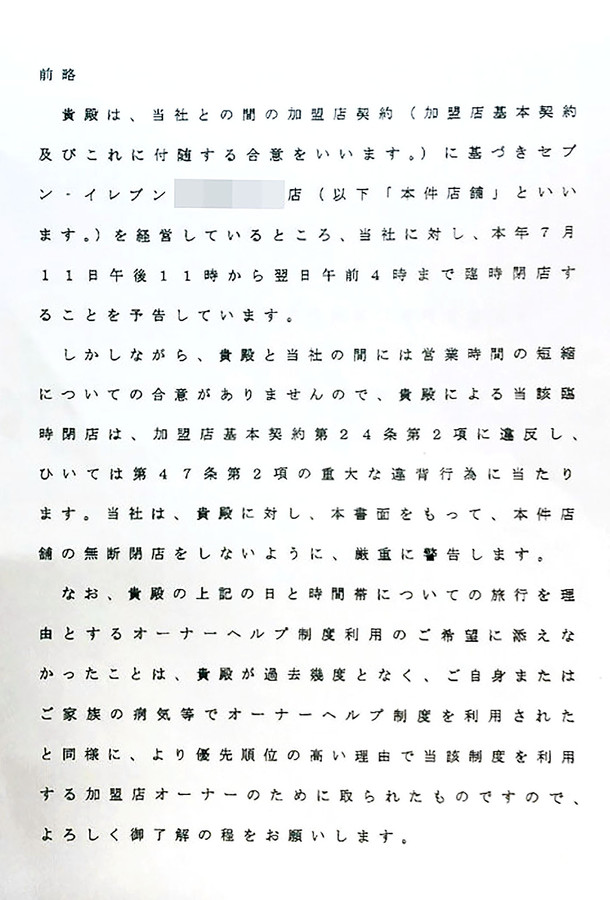 前略
貴殿は、当社との間の加盟店契約（加盟店基本契約
及びこれに付随する合意をいいます。）に基づきセブ
ン‐イレブン 店（以下「本件店舗」といい
ます。）を経営しているところ、当社に対し、本年７月
１１日午後１１時から翌日午前４時まで臨時閉店す
ることを予告しています。
しかしながら、貴殿と当社の間には営業時間の短縮
についての合意がありませんので、貴殿による当該臨
時閉店は、加盟店基本契約第２４条第２項に違反し、
ひいては第４７条第２項の重大な違背行為に当たり
ます。当社は、貴殿に対し、本書面をもって、本件店
舗の無断閉店をしないように、厳重に警告します。
なお、貴殿の上記の日と時間帯についての旅行を理
由とするオーナーヘルプ制度利用のご希望に添えな
かったことは、貴殿が過去幾度となく、ご自身または
ご家族の病気等でオーナーヘルプ制度を利用された
と同様に、より優先順位の高い理由で当該制度を利用
する加盟店オーナーのために取られたものですので、
よろしく御了解の程をお願いします。